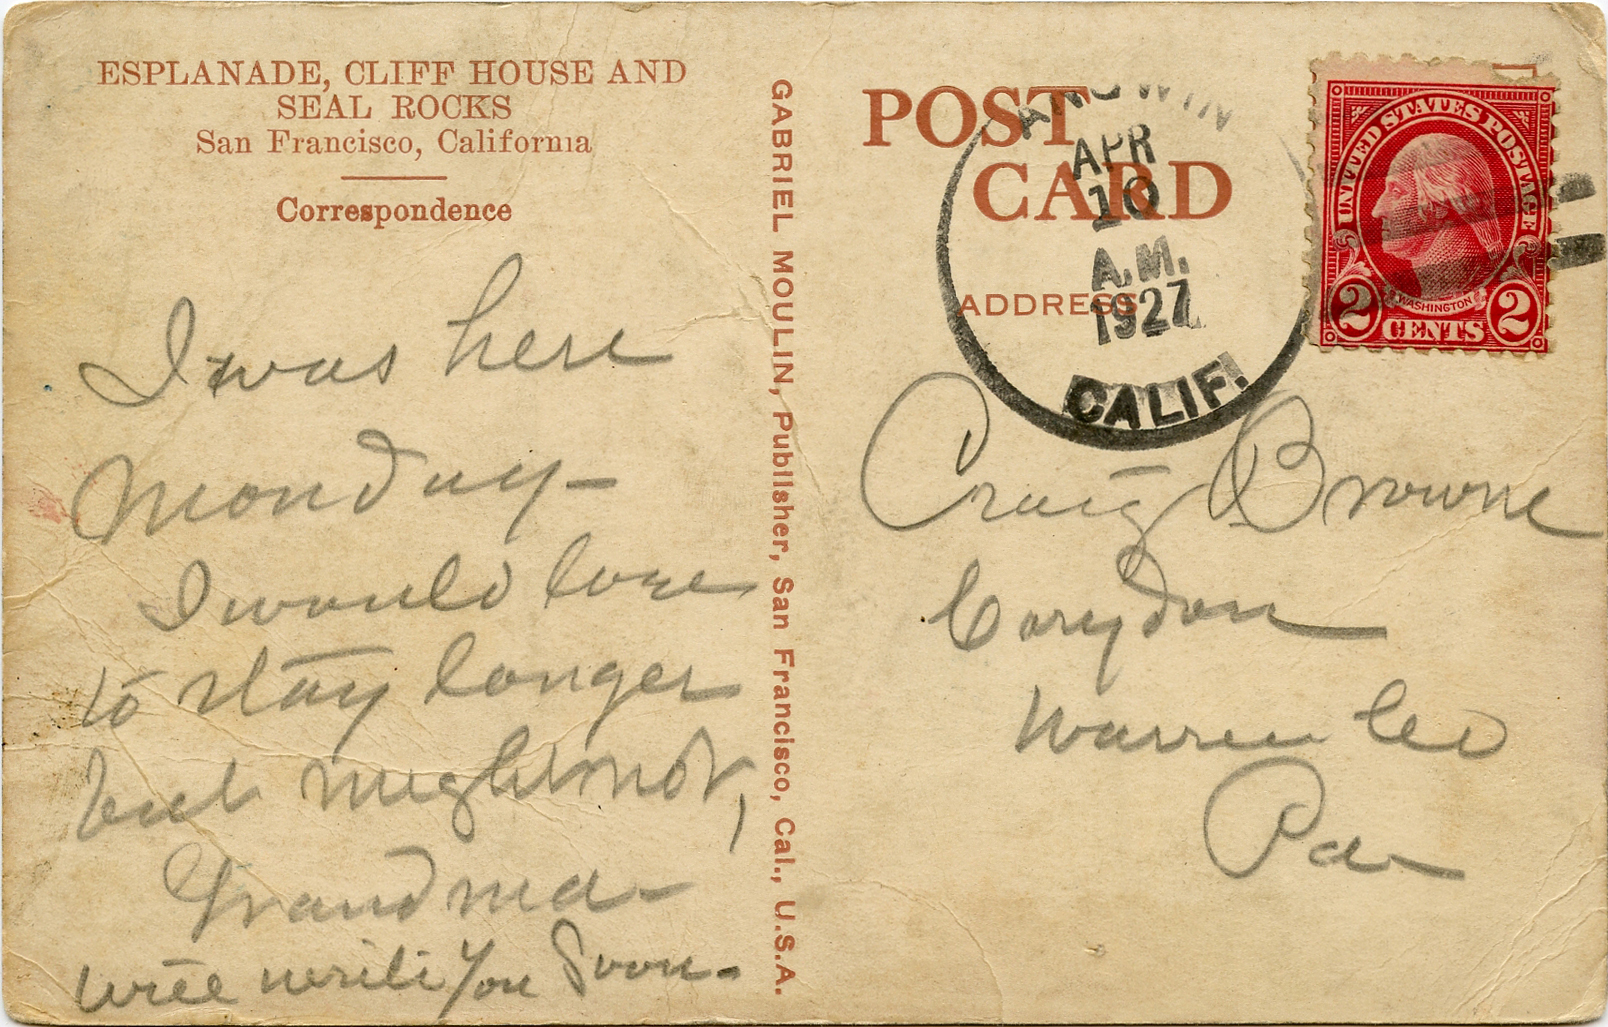 ESPLANADE, CLIFF HOUSE AND
SEAL ROCKS
San Francisco, California
Correspondence
I was here
Monday-
I would love
to stay longer
but might not,
Grandma-
will write you Soon-
GABRIEL MOULIN, Publisher, San Francisco, Cal., U.S.A.
POST
CARD
ADDRESS
ANGWIN
APR
10
A.M.
1927
CALIF.
UNITED STATES POSTAGE
WASHINGTON
2 CENTS 2
Craig Browne
Corydon
Warren Co
Pa-